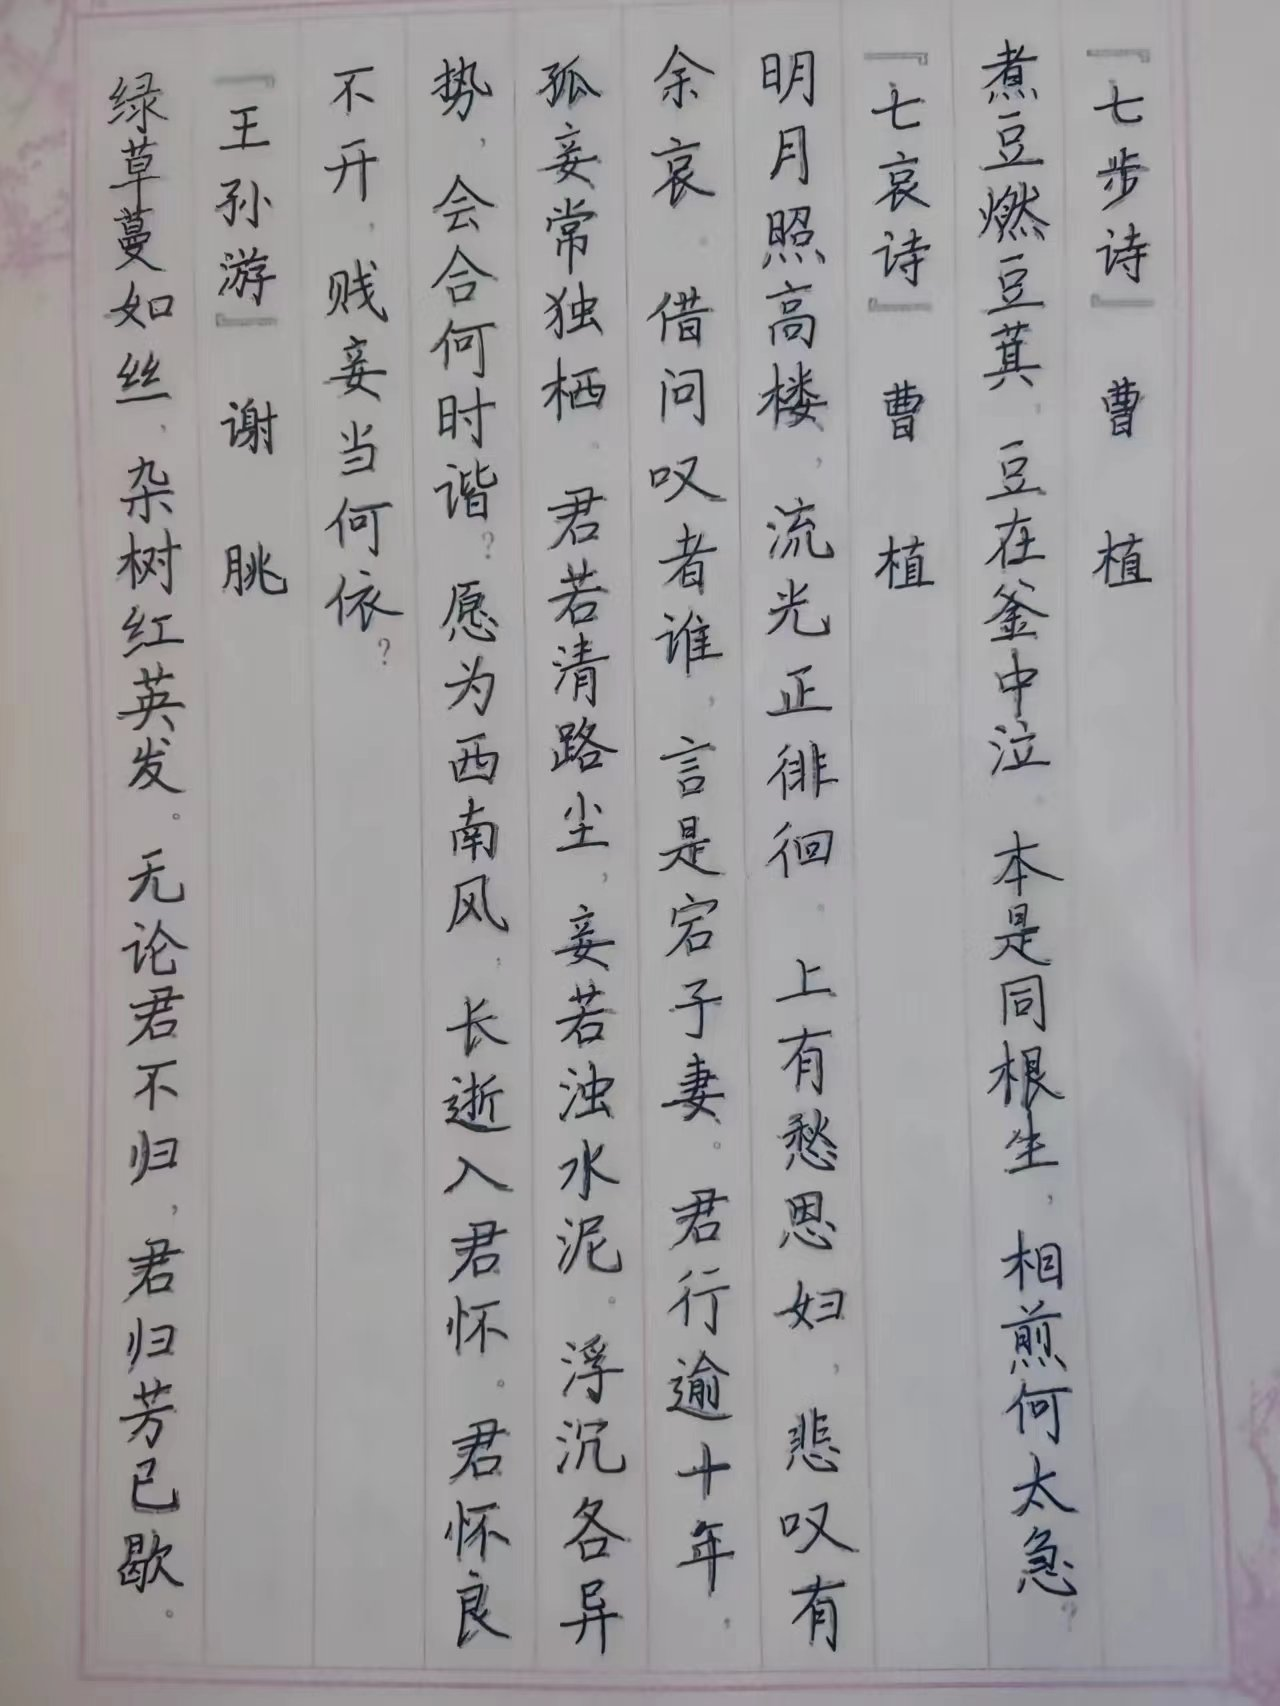 『七步诗』 曹 植
煮豆燃豆萁,豆在釜中泣。本是同根生,相煎何太急?
『七哀诗』 曹 植
明月照高楼,流光正徘徊。上有愁思妇,悲叹有
余哀。借问叹者谁,言是宕子妻。君行逾十年,
孤妾常独栖。君若清路尘,妾若浊水泥。浮沉各异
势,会合何时谐?愿为西南风,长逝入君怀。君怀良
不开,贱妾当何依?
『王孙游』 谢 朓
绿草蔓如丝,杂树红英发。无论君不归,君归芳已歇。